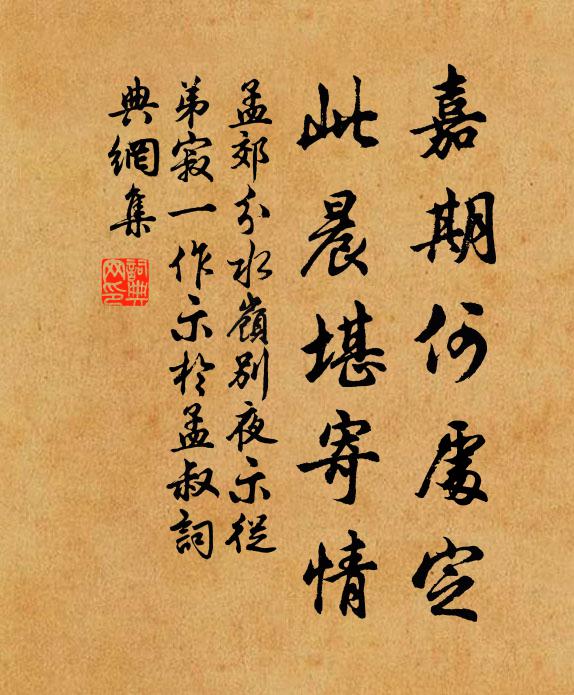 嘉期何處定
此晨堪寄情
孟郊分水嶺別夜示從
弟寂一作示於孟叔詞
典網集
詞典網印